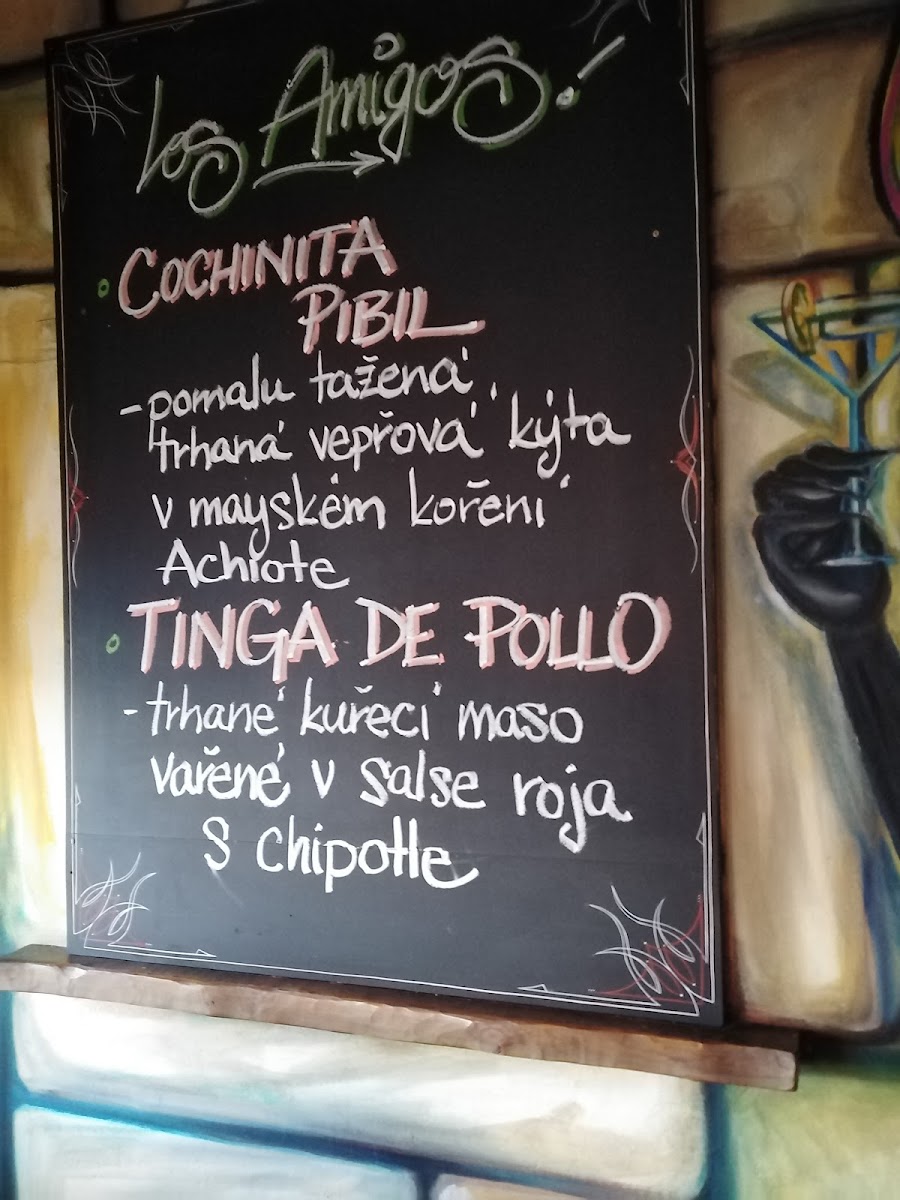 Los Amigos!
COCHINITA
PIBIL
- pomalu tažená,
trhaná vepřová kýta
v mayském koření
Achiote
TINGA DE POLLO
- trhané kuřecí maso
vařené v salse roja
s chipotle